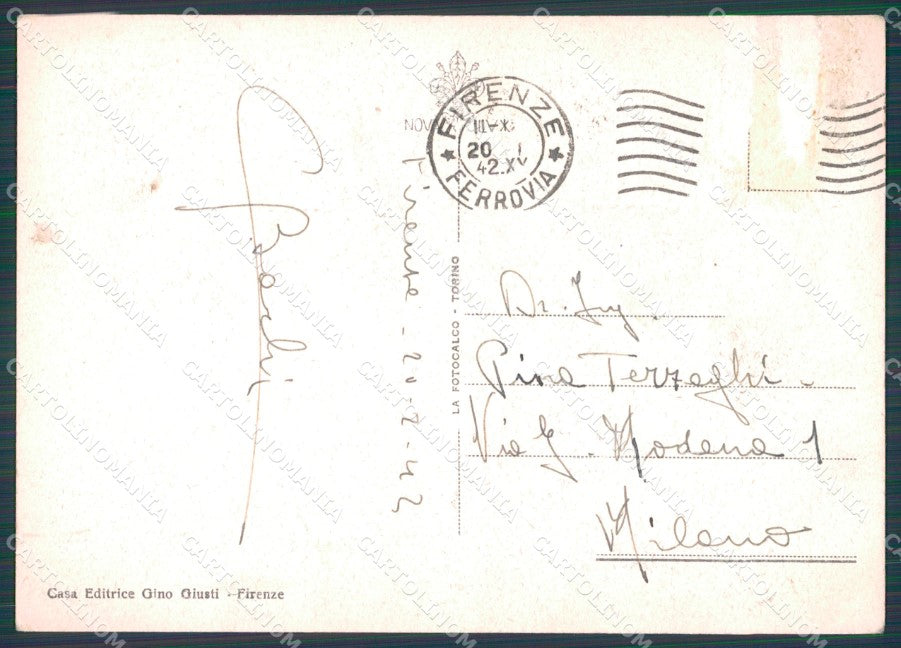 FIRENZE
20 I
42.XX
FERROVIA
Firenze - 20-7-42
LA FOTOCALCO - TORINO
Dr. Ing.
Pina Terzaghi -
Via G. Modena 1
Milano
Casa Editrice Gino Giusti - Firenze
CARTOLINOMANIA